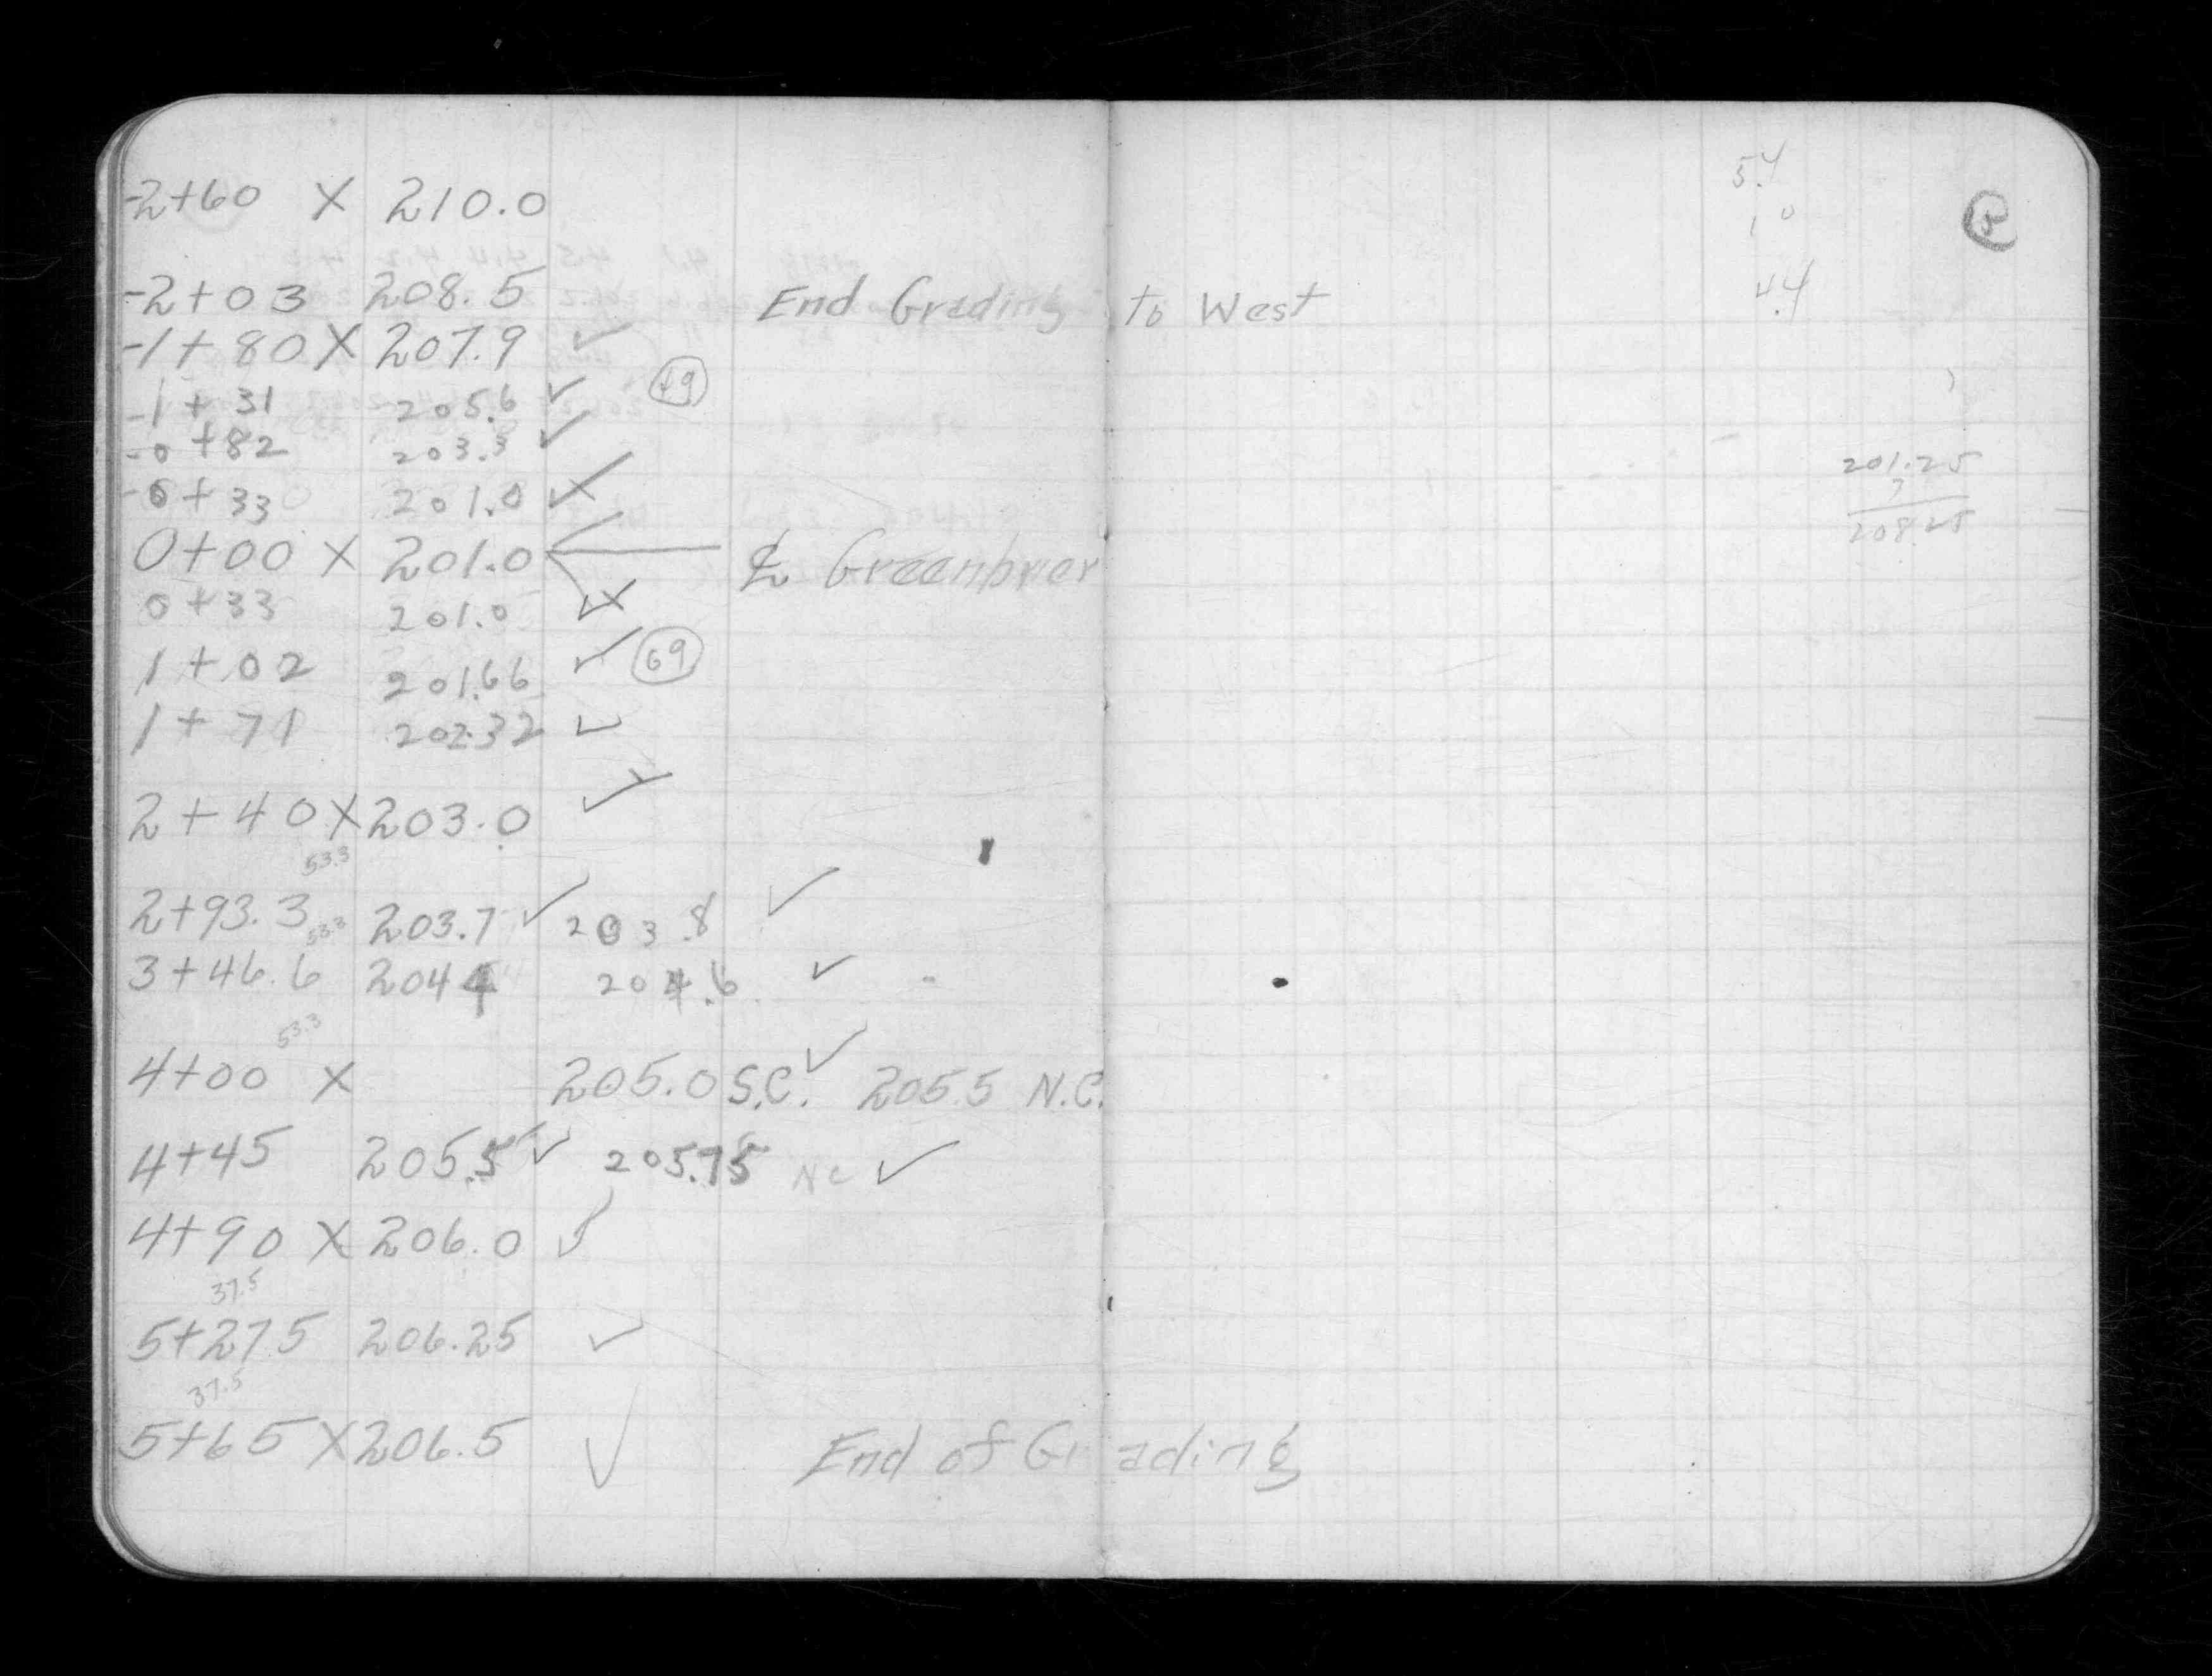 -2+60 X 210.0
-2+03 208.5 End Grading to West
-1+80 X 207.9 ✓
-1+31 205.6 ✓ 49
-0+82 203.3 ✓
-0+33 201.0 ✓
0+00 X 201.0 ℄ Greenbrier
0+33 201.0 ✓
1+02 201.66 ✓ 69
1+71 202.32 ✓
2+40 X 203.0 ✓
53.3
2+93.3 203.7 ✓ 203.8 ✓
53.3
3+46.6 204.4 204.6 ✓
53.3
4+00 X 205.0 S.C. ✓ 205.5 N.C.
4+45 205.5 ✓ 205.75 NC ✓
4+90 X 206.0 ✓
37.5
5+27.5 206.25 ✓
37.5
5+65 X 206.5 ✓ End of Grading
5.4
1.0
4.4
201.25
7
208.25